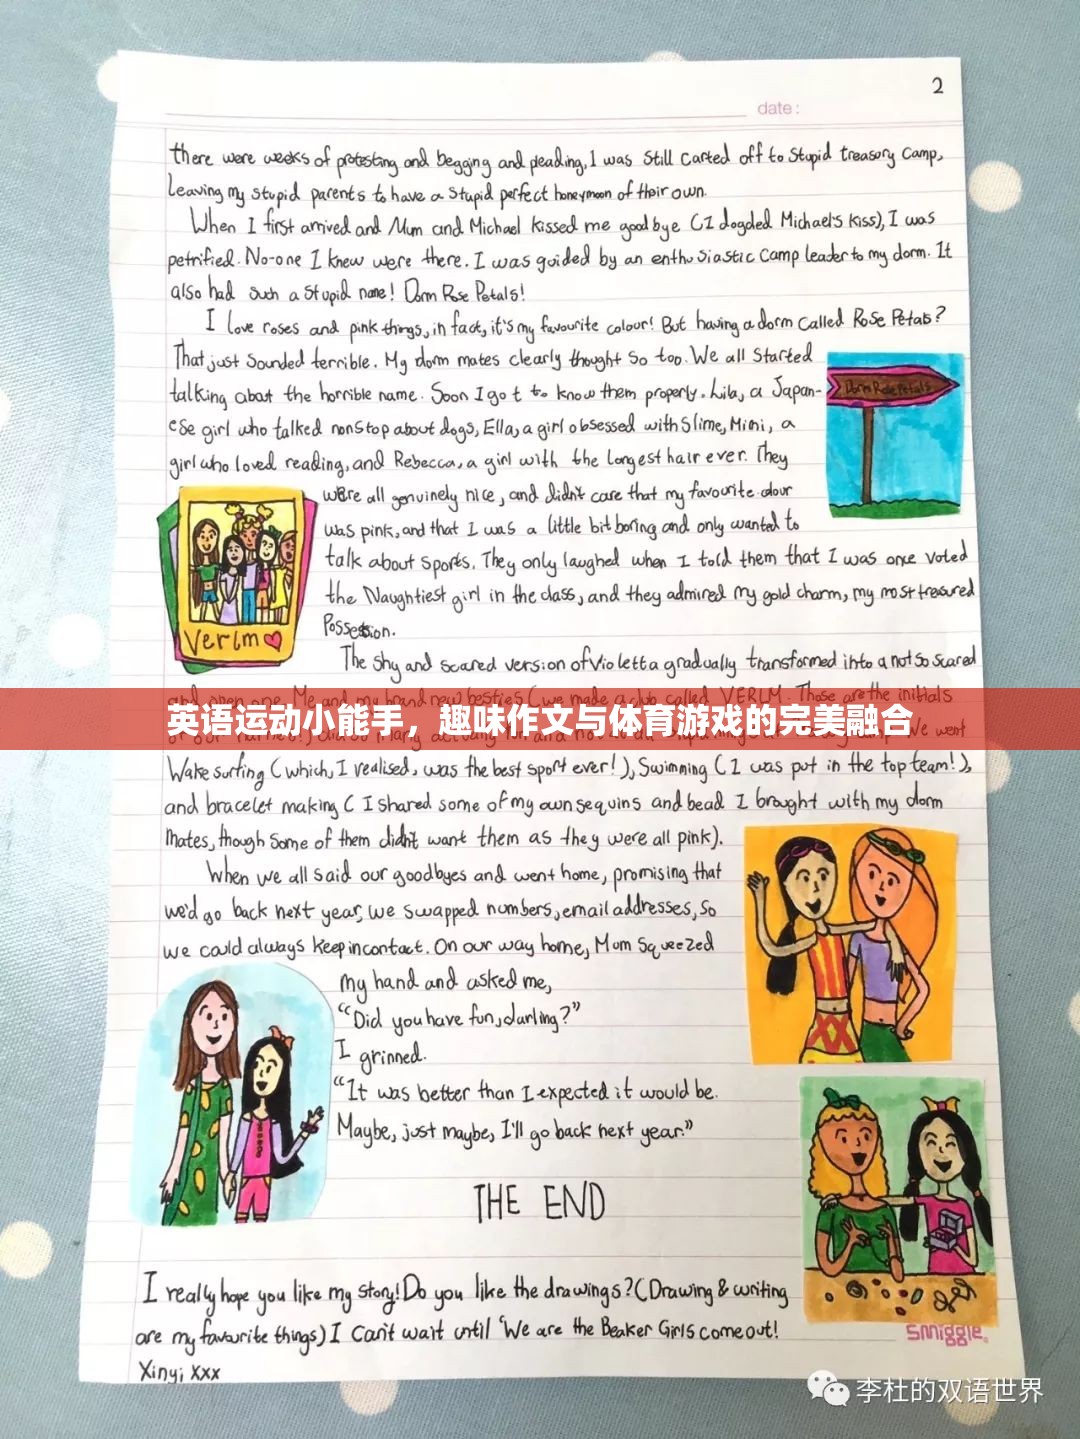 2
date:
there were weeks of protesting and begging and pleading, I was still carted off to Stupid treasury camp,
leaving my stupid parents to have a stupid perfect honeymoon of their own.
When I first arrived and Mum and Michael kissed me goodbye (I dogded Michael's kiss), I was
petrified. No-one I knew were there. I was guided by an enthusiastic camp leader to my dorm. It
also had such a stupid name! Dorm Rose Petals!
I love roses and pink things, in fact, it's my favourite colour! But having a dorm called Rose Petals?
That just sounded terrible. My dorm mates clearly thought so too. We all started
talking about the horrible name. Soon I got to know them properly. Lila, a Japan-
ese girl who talked nonstop about dogs, Ella, a girl obsessed with slime, Mimi, a
girl who loved reading, and Rebecca, a girl with the longest hair ever. They
were all genuinely nice, and didn't care that my favourite colour
was pink, and that I was a little bit boring and only wanted to
talk about sports. They only laughed when I told them that I was once voted
the Naughtiest girl in the class, and they admired my gold charm, my most treasured
Possession.
Dorm Rose Petals
Verlm
The shy and scared version of Violetta gradually transformed into a not so scared
and open one. Me and my brand new besties (we made a club called VERLM. Those are the initials
英语运动小能手，趣味作文与体育游戏的完美融合
We went
Wakesurfing (which, I realised, was the best sport ever!), Swimming (I was put in the top team!),
and bracelet making (I shared some of my own sequins and bead I brought with my dorm
mates, though some of them didn't want them as they were all pink).
When we all said our goodbyes and went home, promising that
we'd go back next year, we swapped numbers, email addresses, so
we could always keep in contact. On our way home, Mom squeezed
my hand and asked me,
“Did you have fun, darling?”
I grinned.
“It was better than I expected it would be.
Maybe, just maybe, I'll go back next year.”
THE END
I really hope you like my story! Do you like the drawings? (Drawing & writing
are my favourite things) I can't wait until 'We are the Beaker Girls come out!
Xinyi xxx
smiggle
李杜的双语世界